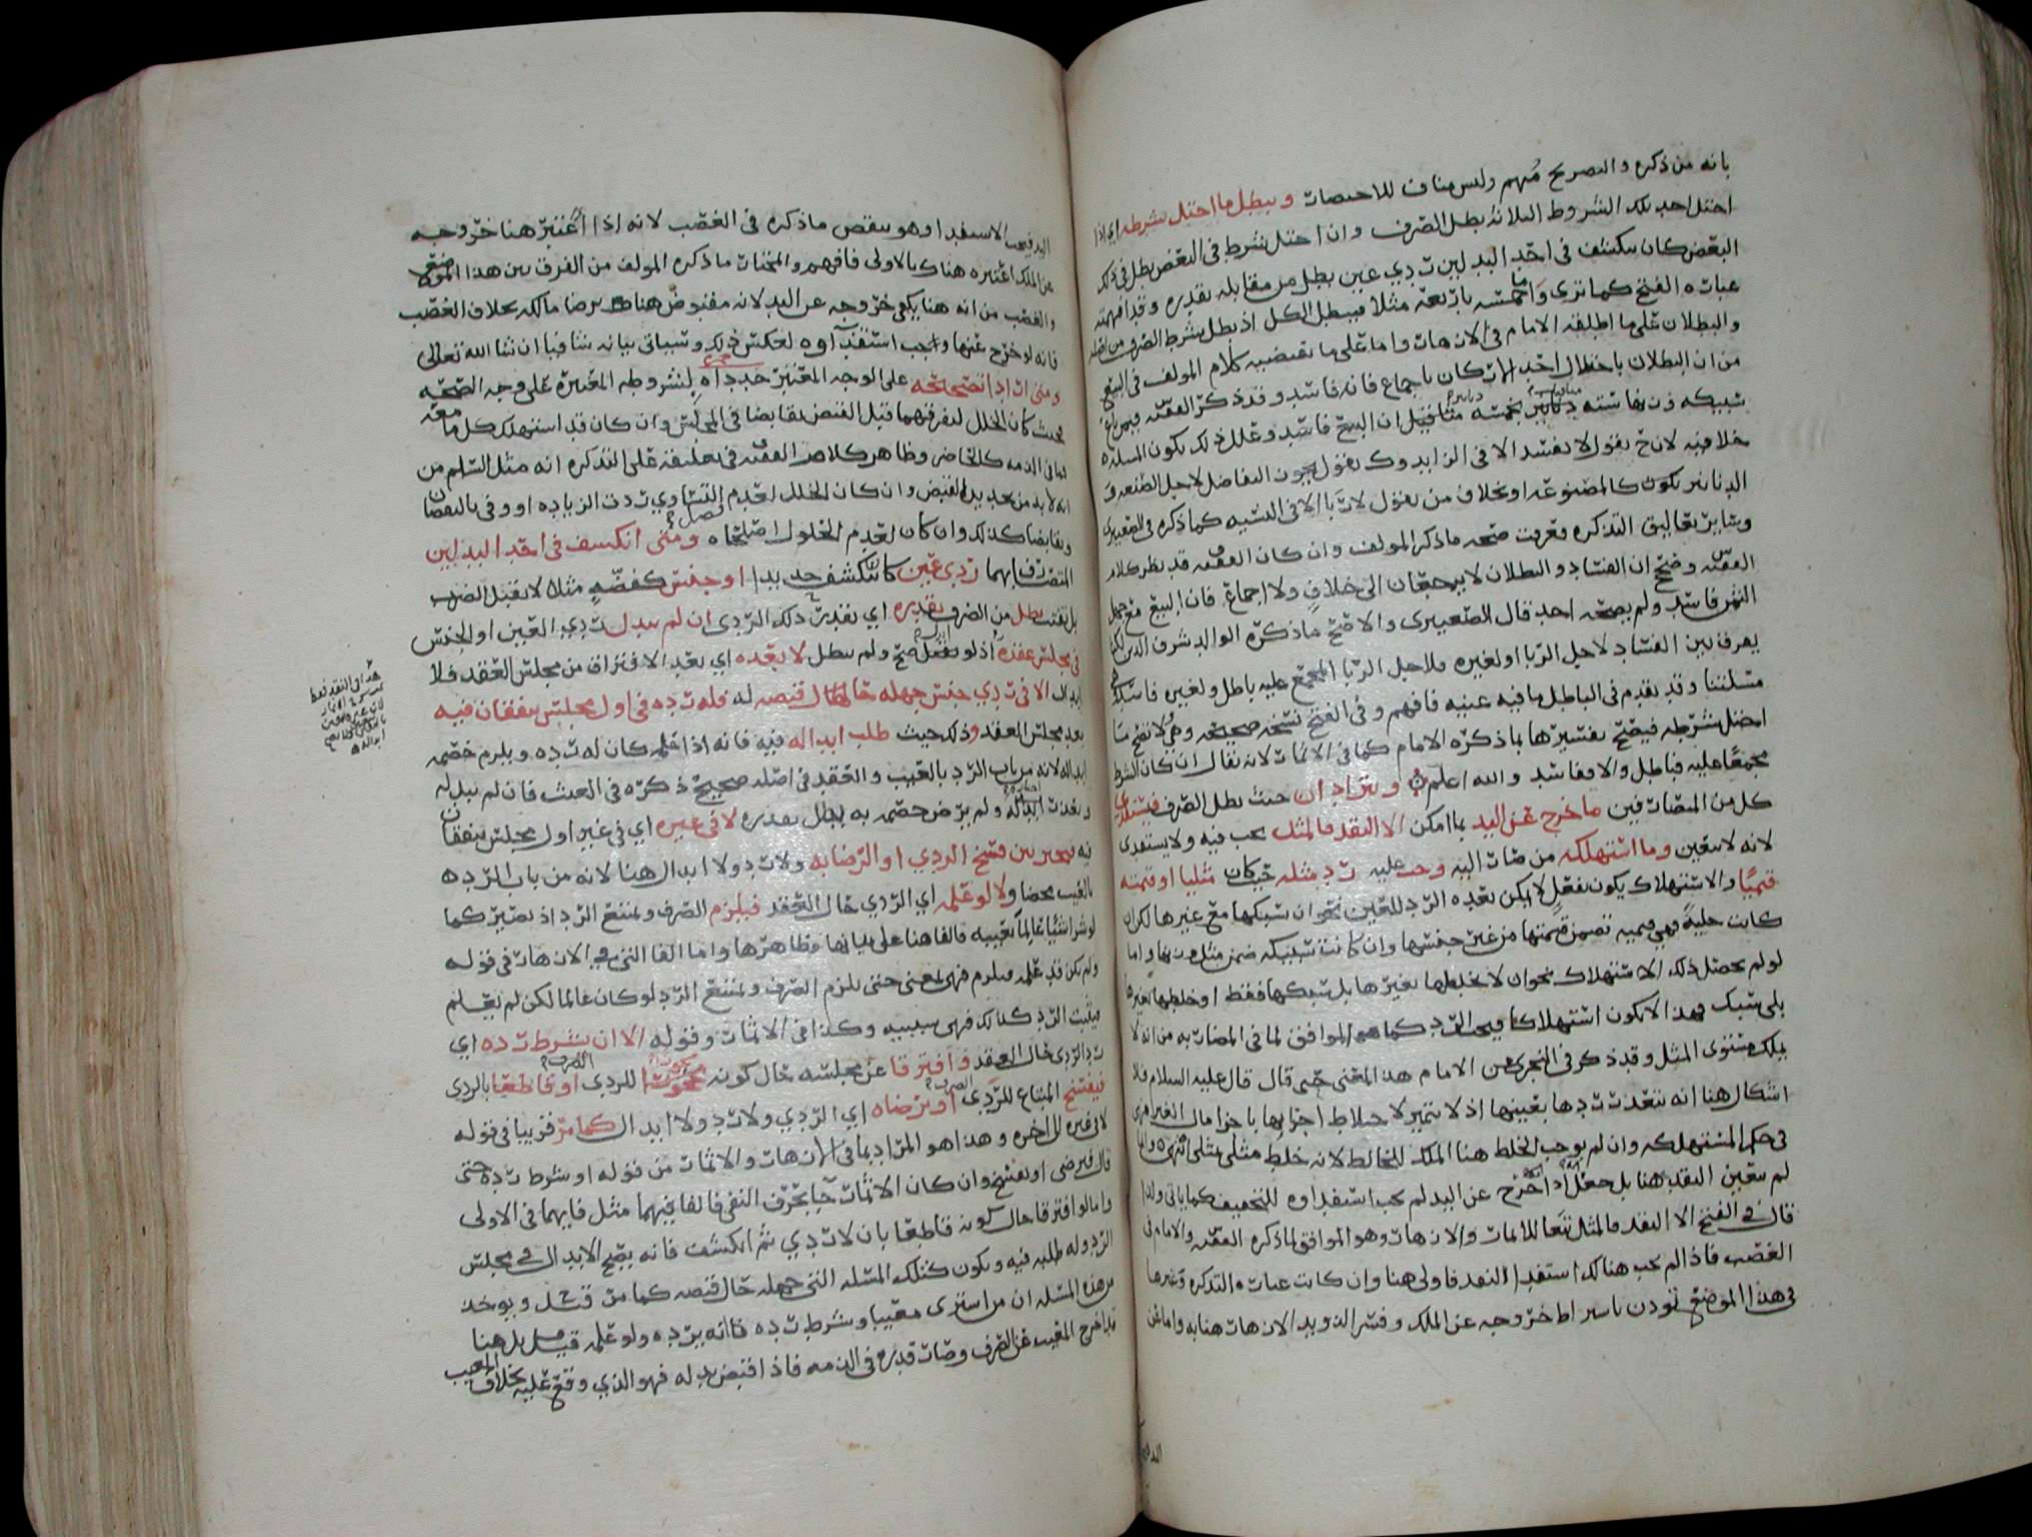 بانه من ذكره والتصريح مفهم وليس مناف للاختصار ويبطل ما اختل شرطه اي اذا
اختل احد تلك الشروط الثلاثة بطل الصرف وان اختل شرط في البعض بطل في ذلك
البعض كان ينكشف في احد البدلين ردي عين بطل من مقابله بقدره وقد افهمته
عبارة الفتح كما ترى واما خمسه باربعه مثلا فيبطل الكل اذ بطل شرط الصرف من اصله
والبطلان على ما اطلقه الامام في الازهار واما على ما تقتضيه كلام المولف في البيع
من ان البطلان باختلال احد الاركان باجماع فانه فاسد وقد ذكر الفقيه فيمن باع
سبيكه فيها سته دنانير بخمسه مثاقيل ان البيع فاسد وعلل ذلك بكون المسله
خلافيه لان ح يقول لا يفسد الا في الزايد وك يقول يجوز التفاضل لاجل الصنعه في
الدنانير تكون كالمصنوعه او بخلاف من يقول لا ربا الا في النسيه كما ذكره في الصعيتري
وساير تعاليق التذكره فعرفت صحه ما ذكر المولف وان كان الفقيه قد نظر كلام
الفقيه وصحح ان الفساد والبطلان لا يرجعان الى خلاف ولا اجماع فان البيع مع جهل
الثمن فاسد ولم يصحه احد قال الصعيتري والاصح ما ذكره الوالد شرف الدين لكن
يعرف بين الفساد لاجل الربا او لغيره فلاجل الربا المجمع عليه باطل ولغيره فاسد كفي
مسلتنا وقد تقدم في الباطل ما فيه غنيه فافهم وفي الفتح نسخه صحيحه وهي لا تصح ما
اختل شرطه فيصح تفسيرها بما ذكره الامام كما في الاثمار لانه يقال ان كان الشرط
مجمعا عليه فباطل والا ففاسد والله اعلم ويترادان حيث بطل الصرف فيسترد
كل من المتصارفين ما خرج عن اليد بما امكن الا النقد فالمثل يجب فيه ولا يستفدى
لانه لا يتعين وما استهلكه من صار اليه وجب عليه رد مثله حيث كان مثليا او قيمته
قيميا والاستهلاك يكون بفعل لا يمكن بعده الرد للعين نحو ان سبكها مع غيرها لكن ان
كانت حلية فهي قيميه تضمن قيمتها من غير جنسها وان كانت سبيكه ضمن مثل وزنها واما
لو لم يحصل ذلك الاستهلاك نحو ان لا يخلطها بغيرها بل سبكها فقط او خلطها بغيره
بلى سبك فهذا لا يكون استهلاكا فيجب الرد كما هو الموافق لما في المضاربه من انه لا
يملك مستوى المثل وقد ذكر في البحر عن الامام هذا المعنى حتى قال قال عليه السلام فلا
اشكال هنا انه يتعذر ردها بعينها اذ لا تتميز لاختلاط اجزايها باجزا مال الغير فهي
في حكم المستهلكه وان لم يوجب الخلط هنا الملك للخالط لانه خلط مثلي بمثلي انتهى وانما
لم يتعين النقد هنا بل جعل انه اذا خرج عن اليد لم يجب استفداوه للتخفيف كما ياتي ولذا
قال في الفتح الا النقد فالمثل تبعا للاثمار والازهار وهو الموافق لما ذكره الفقيه والامام في
الغصب فاذا لم يجب هناك استفدا النقد فاولى هنا وان كانت عبارة التذكره وغيرها
في هذا الموضع تودن باشتراط خروجه عن الملك وفسر الذويد الازهار هنا به واما عن
اليد فيجب الاستفدا وهو ينقض ما ذكره في الغصب لانه اذا اعتبر هنا خروجه
عن الملك اعتبره هناك بالاولى فافهم والمختار ما ذكره المولف من الفرق بين هذا الموضع
والغصب من انه هنا يكفي خروجه عن اليد لانه مقبوض هنا برضا مالكه بخلاف الغصب
فانه لو خرج عنها وجب استفداوه لعكس ذلك وسياتي بيانه شافيا ان شا الله تعالى
ومتى ارادا تصحيحه على الوجه المعتبر جدداه بشروطه المعتبرة على وجه الصحه
بحيث كان الخلل لتفرقهما قبل القبض تقابضا في المجلس وان كان قد استهلك كل ما معه
لما في الذمه كالحاضر وظاهر كلام الفقيه في تعليقه على التذكره انه مثل السلم من
انه لا بد من تجديد القبض وان كان الخلل لعدم التساوي ردت الزياده او وفى بالنقصان
وتقابضا كذلك وان كان لعدم الحلول اصلحاه فصل ومتى انكشف في احد البدلين
المتصارف بهما ردي عين كان ينكشف حديدا او جنس كفضة مثلا لا تقبل الضرب
بل تفتت بطل من الصرف بقدره اي بقدر ذلك الردي ان لم يبدل ردي العين او الجنس
في مجلس عقده اذ لو بدل صح ولم يبطل لا بعده اي بعد الافتراق من مجلس العقد فلا
ابدال الا في ردي جنس جهله حال قبضه له فله رده في اول مجلس يتفقان فيه
بعد مجلس العقد وذلك حيث طلب ابداله فيه فانه اذا علم كان له رده ويلزم خصمه
ابداله لانه من باب الرد بالعيب والعقد في اصله صحيح ذكره في الغيث فان لم يبدله
وتعذر ابداله ولم يرض خصمه به بطل بقدره لا في غيره اي في غير اول مجلس يتفقان
فيه فيخير بين فسخ الردي او الرضا به ولا رد ولا ابدال هنا لانه من باب الرد
بالعيب محضا ولا لو علمه اي الردي حال العقد فيلزم الصرف ويمتنع الرد اذ يصير كما
لو شرا شيا عالما بعيبه فالفا هنا على بابها وظاهرها واما الفا التي في الازهار في قوله
ولم يكن قد علمه فيلزم فهي بمعنى حتى يلزم الصرف ويمتنع الرد لو كان عالما لكن لم يعلم
فيثبت الرد كذلك فهي سببيه وكذا في الاثمار وقوله الا ان يشرط رده اي
رد الردي حال العقد وافترقا عن مجلسه حال كونه مجوزا للردي او قاطعا بالردي
فيفسخ المبتاع للردي او يرضاه اي الردي ولا رد ولا ابدال كما مر قريبا في قوله
لا في غيره الى اخره وهذا هو المراد بما في الازهار والاثمار من قوله او شرط رده حتى
قال فيرضى او يفسخ وان كان الاثمار جا بحرف النفي فالفا فيهما مثل فايهما في الاولى
واما لو افترقا حال كونه قاطعا بان لا ردي ثم انكشف فانه يصح الابدال في مجلس
الرد وله طلبه فيه ويكون كتلك المسله التي جهله حال قبضه كما مر قبل ويوخذ
من هذه المسله ان من اشترى معيبا وشرط رده فانه يرده ولو علمه قيل بل هنا
قد اخرج المعيب عن الصرف وصار قدره في الذمه فاذا اقبض بدله فهو الذي وقع عليه بخلاف المعيب